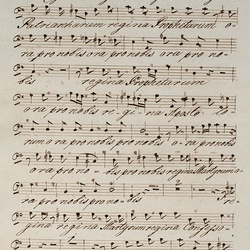 Patriarcharum regina Prophetarum o-
ra pro nobis ora pro nobis ora pro no-
bis regina Prophetarum
ora pro nobis regina Aposto lo
rum ora pro nobis ora pro nobis o-ra pro nobis
ora pro no-bis pro nobis regina Martyrum o-
ra pro nobis pro nobis re-
gina regina Martyrum regina Confesso-